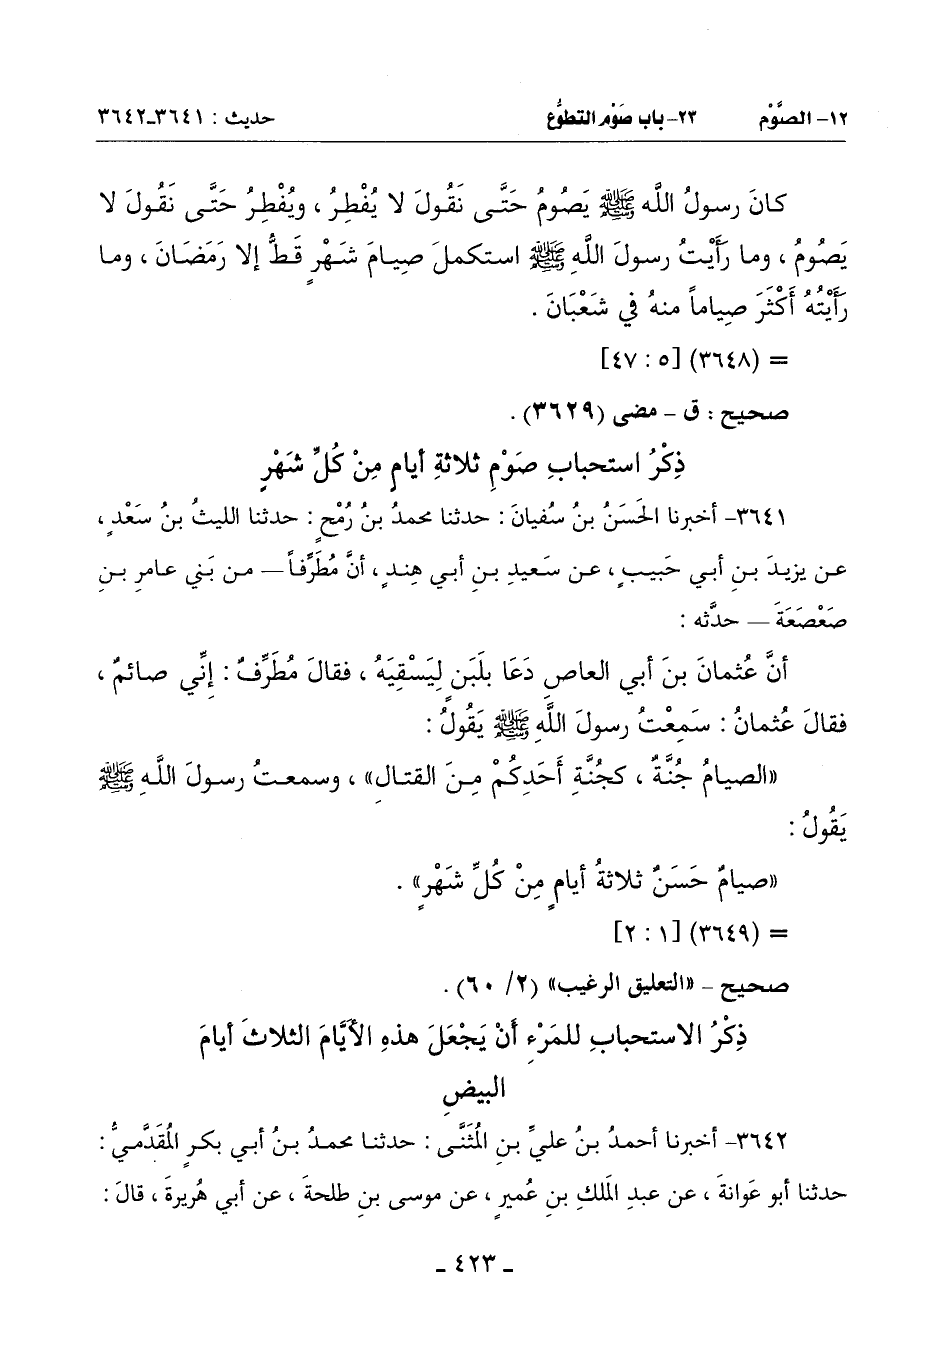 ١٢- الصَّوْم ٢٣- باب صَوْم التطوُّع حديث : ٣٦٤١-٣٦٤٢
كانَ رسولُ اللَّه ﷺ يَصُومُ حَتَّى نَقُولَ لا يُفْطِرُ ، ويُفْطِرُ حَتَّى نَقُولَ لا
يَصُومُ ، وما رَأَيْتُ رسولَ اللَّهِ ﷺ استكملَ صِيامَ شَهْرٍ قَطُّ إلا رَمَضَانَ ، وما
رَأَيْتُهُ أَكْثَرَ صِياماً منهُ في شَعْبَانَ .
= (٣٦٤٨) [٥ : ٤٧]
صحيح : ق - مضى (٣٦٢٩) .
ذِكْرُ استحبابِ صَوْمِ ثلاثةِ أيامٍ مِنْ كُلِّ شَهْرٍ
٣٦٤١- أخبرنا الحَسَنُ بنُ سُفيانَ : حدثنا محمدُ بنُ رُمْحٍ : حدثنا الليثُ بنُ سَعْدٍ ،
عن يزيدَ بنِ أبي حَبيبٍ ، عن سَعيدِ بنِ أبي هِندٍ ، أنَّ مُطَرِّفاً — من بَني عامرِ بنِ
صَعْصَعَةَ — حدَّثه :
أنَّ عُثمانَ بنَ أبي العاصِ دَعَا بلَبَنٍ لِيَسْقِيَهُ ، فقالَ مُطَرِّفٌ : إنِّي صائمٌ ،
فقالَ عُثمانُ : سَمِعْتُ رسولَ اللَّهِ ﷺ يَقُولُ :
«الصيامُ جُنَّةٌ ، كجُنَّةِ أَحَدِكُمْ مِنَ القتالِ» ، وسمعتُ رسولَ اللَّهِ ﷺ
يَقُولُ :
«صيامٌ حَسَنٌ ثلاثةُ أيامٍ مِنْ كُلِّ شَهْرٍ» .
= (٣٦٤٩) [١ : ٢]
صحيح - «التعليق الرغيب» (٢/ ٦٠) .
ذِكْرُ الاستحبابِ للمَرْءِ أَنْ يَجْعَلَ هذهِ الأَيَّامَ الثلاثَ أيامَ
البيضِ
٣٦٤٢- أخبرنا أحمدُ بنُ عليِّ بنِ المُثنَّى : حدثنا محمدُ بنُ أبي بكرٍ المُقدَّميُّ :
حدثنا أبو عَوانةَ ، عن عبدِ المَلكِ بنِ عُميرٍ ، عن موسى بنِ طلحةَ ، عن أبي هُريرةَ ، قالَ :
- ٤٢٣ -